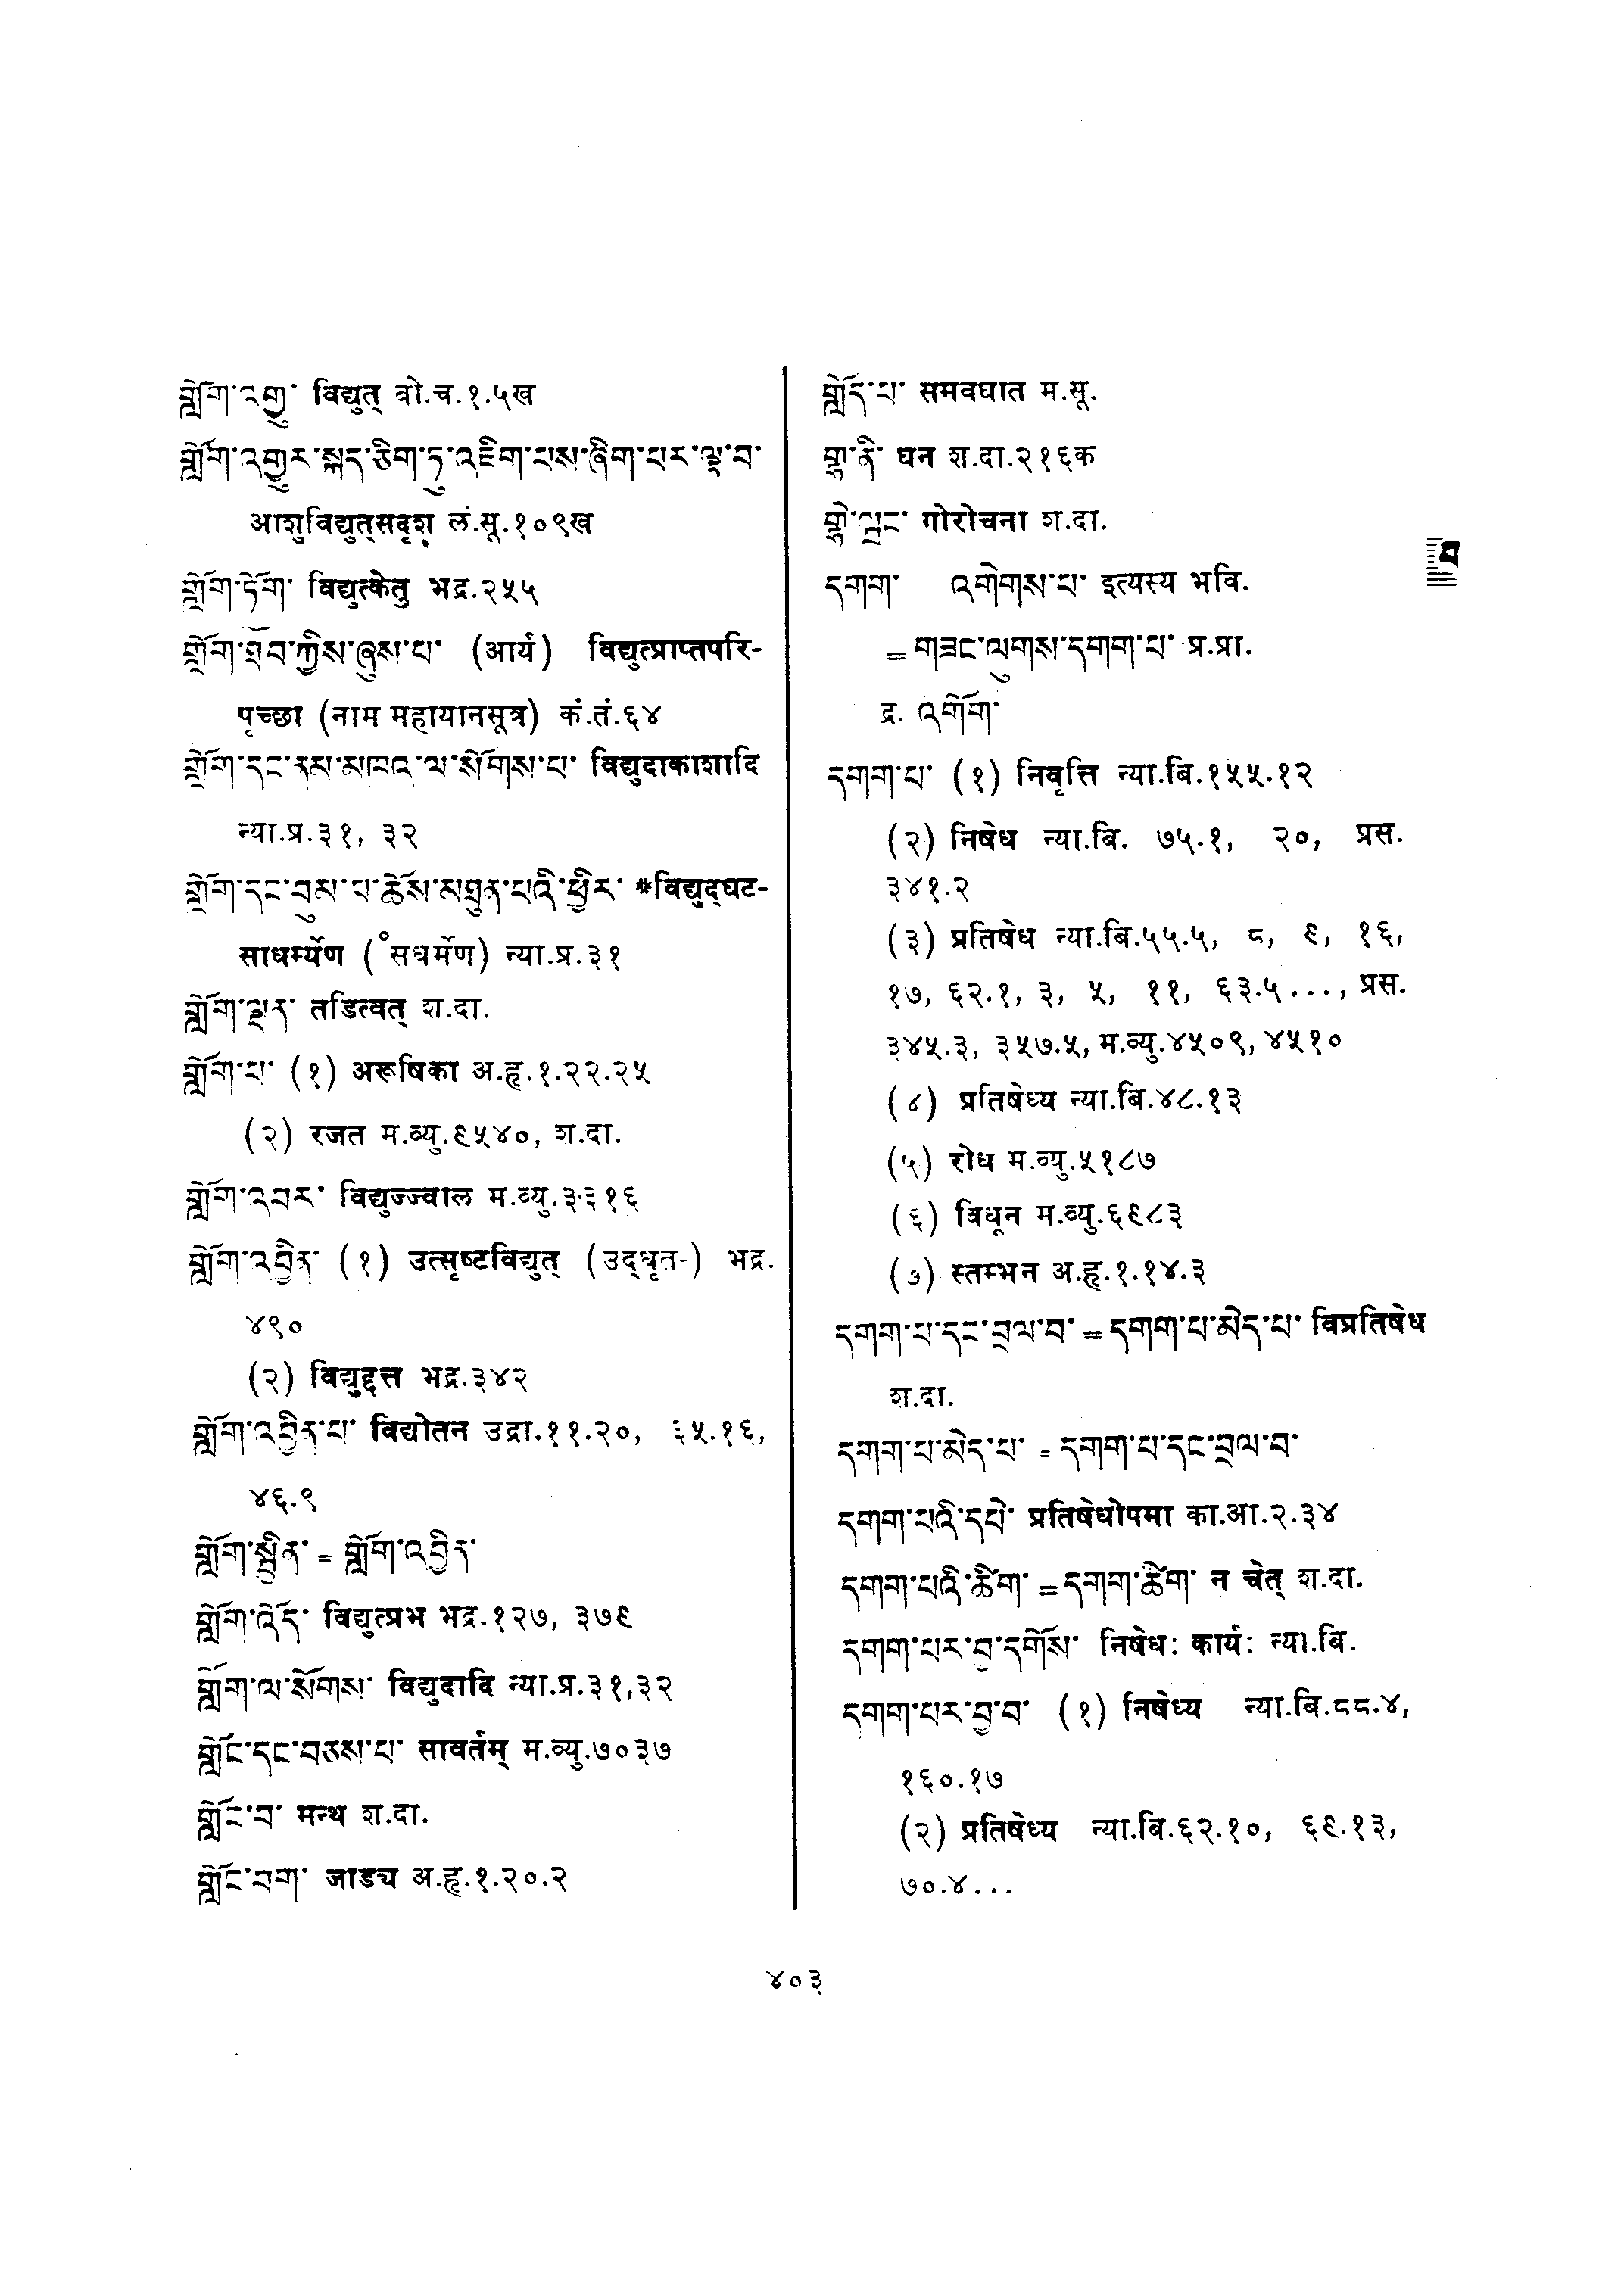 གློག་འགྱུ་ विद्युत् बो.च.१.५ख
གློག་འགྱུར་སྐད་ཅིག་ཏུ་འཇིག་པས་ཞིག་པར་ལྟ་བ་
आशुविद्युत्सदृश् लं.सू.१०९ख
གློག་ཏོག་ विद्युत्केतु भद्र.२५५
གློག་ཐོབ་ཀྱིས་ཞུས་པ་ (आर्य) विद्युत्प्राप्तपरि-
पृच्छा (नाम महायानसूत्र) कं.तं.६४
གློག་དང་ནམ་མཁའ་ལ་སོགས་པ་ विद्युदाकाशादि
न्या.प्र.३१, ३२
གློག་དང་བུམ་པ་ཆོས་མཐུན་པའི་ཕྱིར་ *विद्युद्घट-
साधर्म्येण (॰सधर्मेण) न्या.प्र.३१
གློག་ལྡན་ तडित्वत् श.दा.
གློག་པ་ (१) अरूषिका अ.हृ.१.२२.२५
(२) रजत म.व्यु.९५४०, श.दा.
གློག་འབར་ विद्युज्ज्वाल म.व्यु.३३१६
གློག་འབྱིན་ (१) उत्सृष्टविद्युत् (उद्धृत-) भद्र.
४९०
(२) विद्युद्दत्त भद्र.३४२
གློག་འབྱིན་པ་ विद्योतन उद्रा.११.२०, ६५.१६,
४६.९
གློག་སྦྱིན་ = གློག་འབྱིན་
གློག་འོད་ विद्युत्प्रभ भद्र.१२७, ३७९
གློག་ལ་སོགས་ विद्युदादि न्या.प्र.३१,३२
གློང་དང་བཅས་པ་ सावर्तम् म.व्यु.७०३७
གློང་བ་ मन्थ श.दा.
གློང་བག་ जाड्य अ.हृ.१.२०.२
གློད་པ་ समवघात म.सू.
གྷ་ནི་ घन श.दा.२१६क
གྷེ་ལྦང་ गोरोचना श.दा.
དགག་ འགེགས་པ་ इत्यस्य भवि.
= གཟང་ལུགས་དགག་པ་ प्र.प्रा.
द्र. འགོག་
དགག་པ་ (१) निवृत्ति न्या.बि.१५५.१२
(२) निषेध न्या.बि. ७५.१, २०, प्रस.
३४१.२
(३) प्रतिषेध न्या.बि.५५.५, ८, ९, १६,
१७, ६२.१, ३, ५, ११, ६३.५..., प्रस.
३४५.३, ३५७.५, म.व्यु.४५०९, ४५१०
(४) प्रतिषेध्य न्या.बि.४८.१३
(५) रोध म.व्यु.५१८७
(६) विधून म.व्यु.६९८३
(७) स्तम्भन अ.हृ.१.१४.३
དགག་པ་དང་བྲལ་བ་ = དགག་པ་མེད་པ་ विप्रतिषेध
श.दा.
དགག་པ་མེད་པ་ = དགག་པ་དང་བྲལ་བ་
དགག་པའི་དཔེ་ प्रतिषेधोपमा का.आ.२.३४
དགག་པའི་ཚིག་ = དགག་ཚིག་ न चेत् श.दा.
དགག་པར་བྱ་དགོས་ निषेधः कार्यः न्या.बि.
དགག་པར་བྱ་བ་ (१) निषेध्य न्या.बि.८८.४,
१६०.१७
(२) प्रतिषेध्य न्या.बि.६२.१०, ६९.१३,
७०.४...
४०३